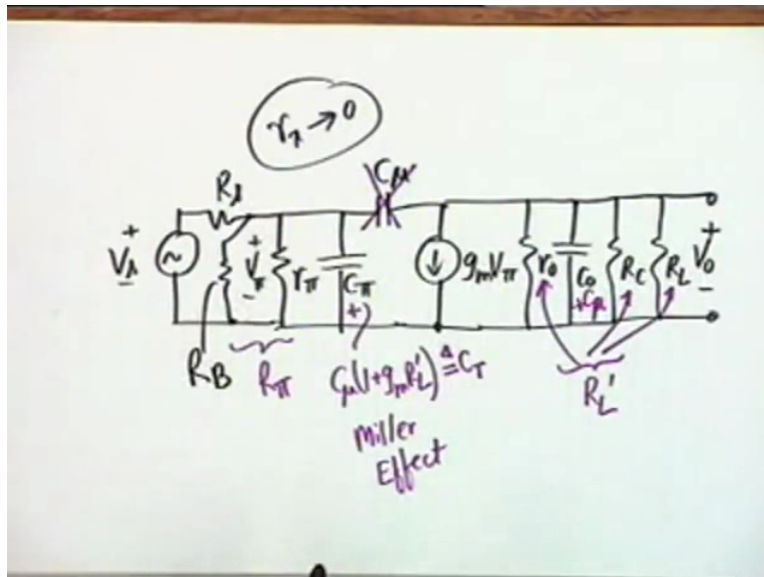 rₓ → 0
Cμ
Rₛ
+
Vₛ
-
+
Vπ
-
rπ
Cπ
+
gₘVπ
r₀
C₀
+Cμ
R_C
R_L
+
V₀
-
R_B
Rπ
Cμ(1+gₘR_L') ≜ C_T
R_L'
Miller
Effect